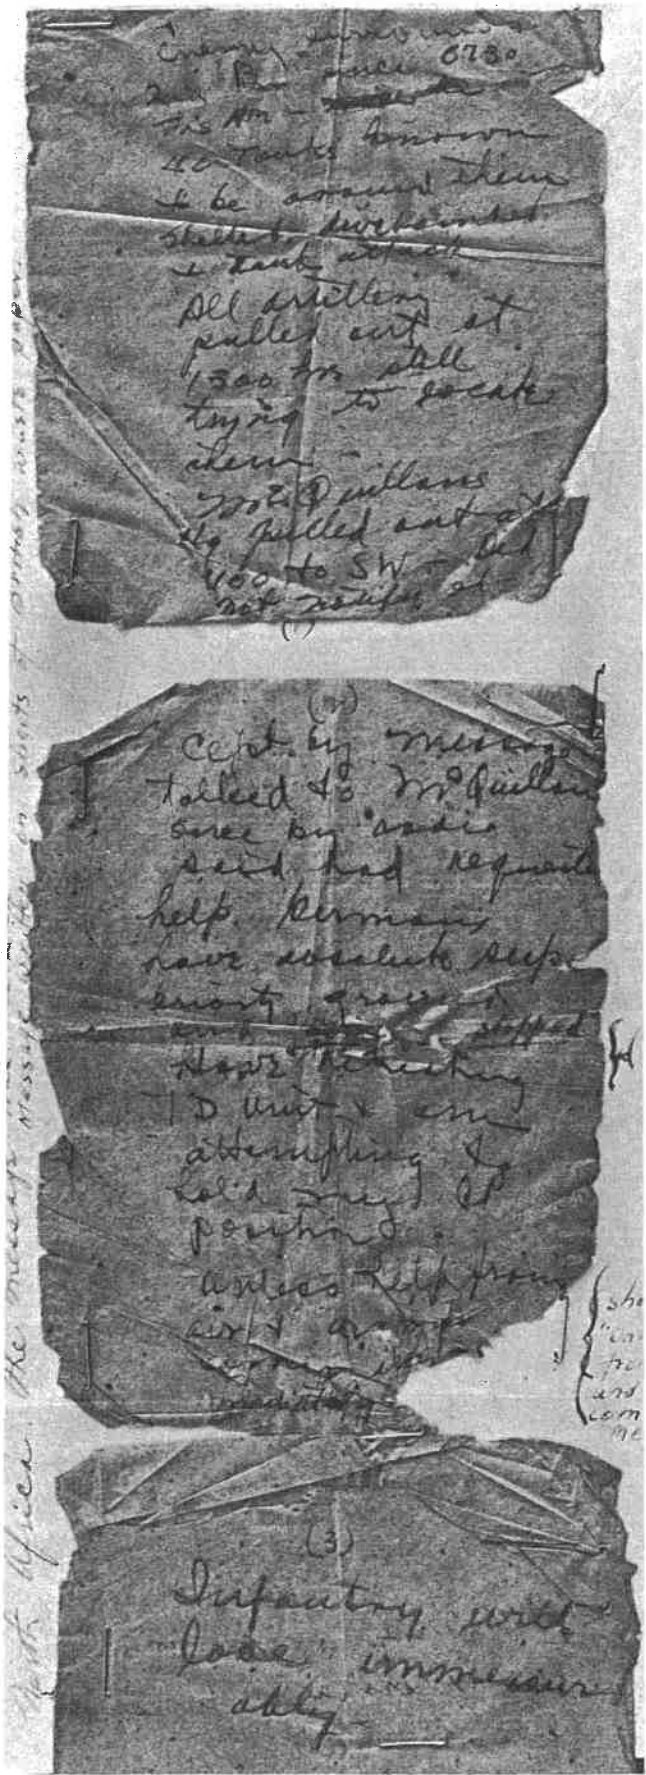 Enemy surround
2nd Bn since 0730
this Am -
40 Tanks known
to be around them
Shelled, divebombed
& tank attack
All artillery
pulled out at
1300 hrs still
trying to locate
them -
McQuillans
Hq pulled out at
1400 to SW - Did
not notify
(1)
(2)
cept by message
talked to McQuillan
once by radio
said had request
help. Germans
have absolute supe
riority ground
and stopped
Have
TD unit & am
attempting to
hold my CP
position.
Unless help from
air & armor
comes im
mediately
(3)
Infantry will
lose immeasur
ably -
North Africa. The message
Message written on sheets of British waste paper.